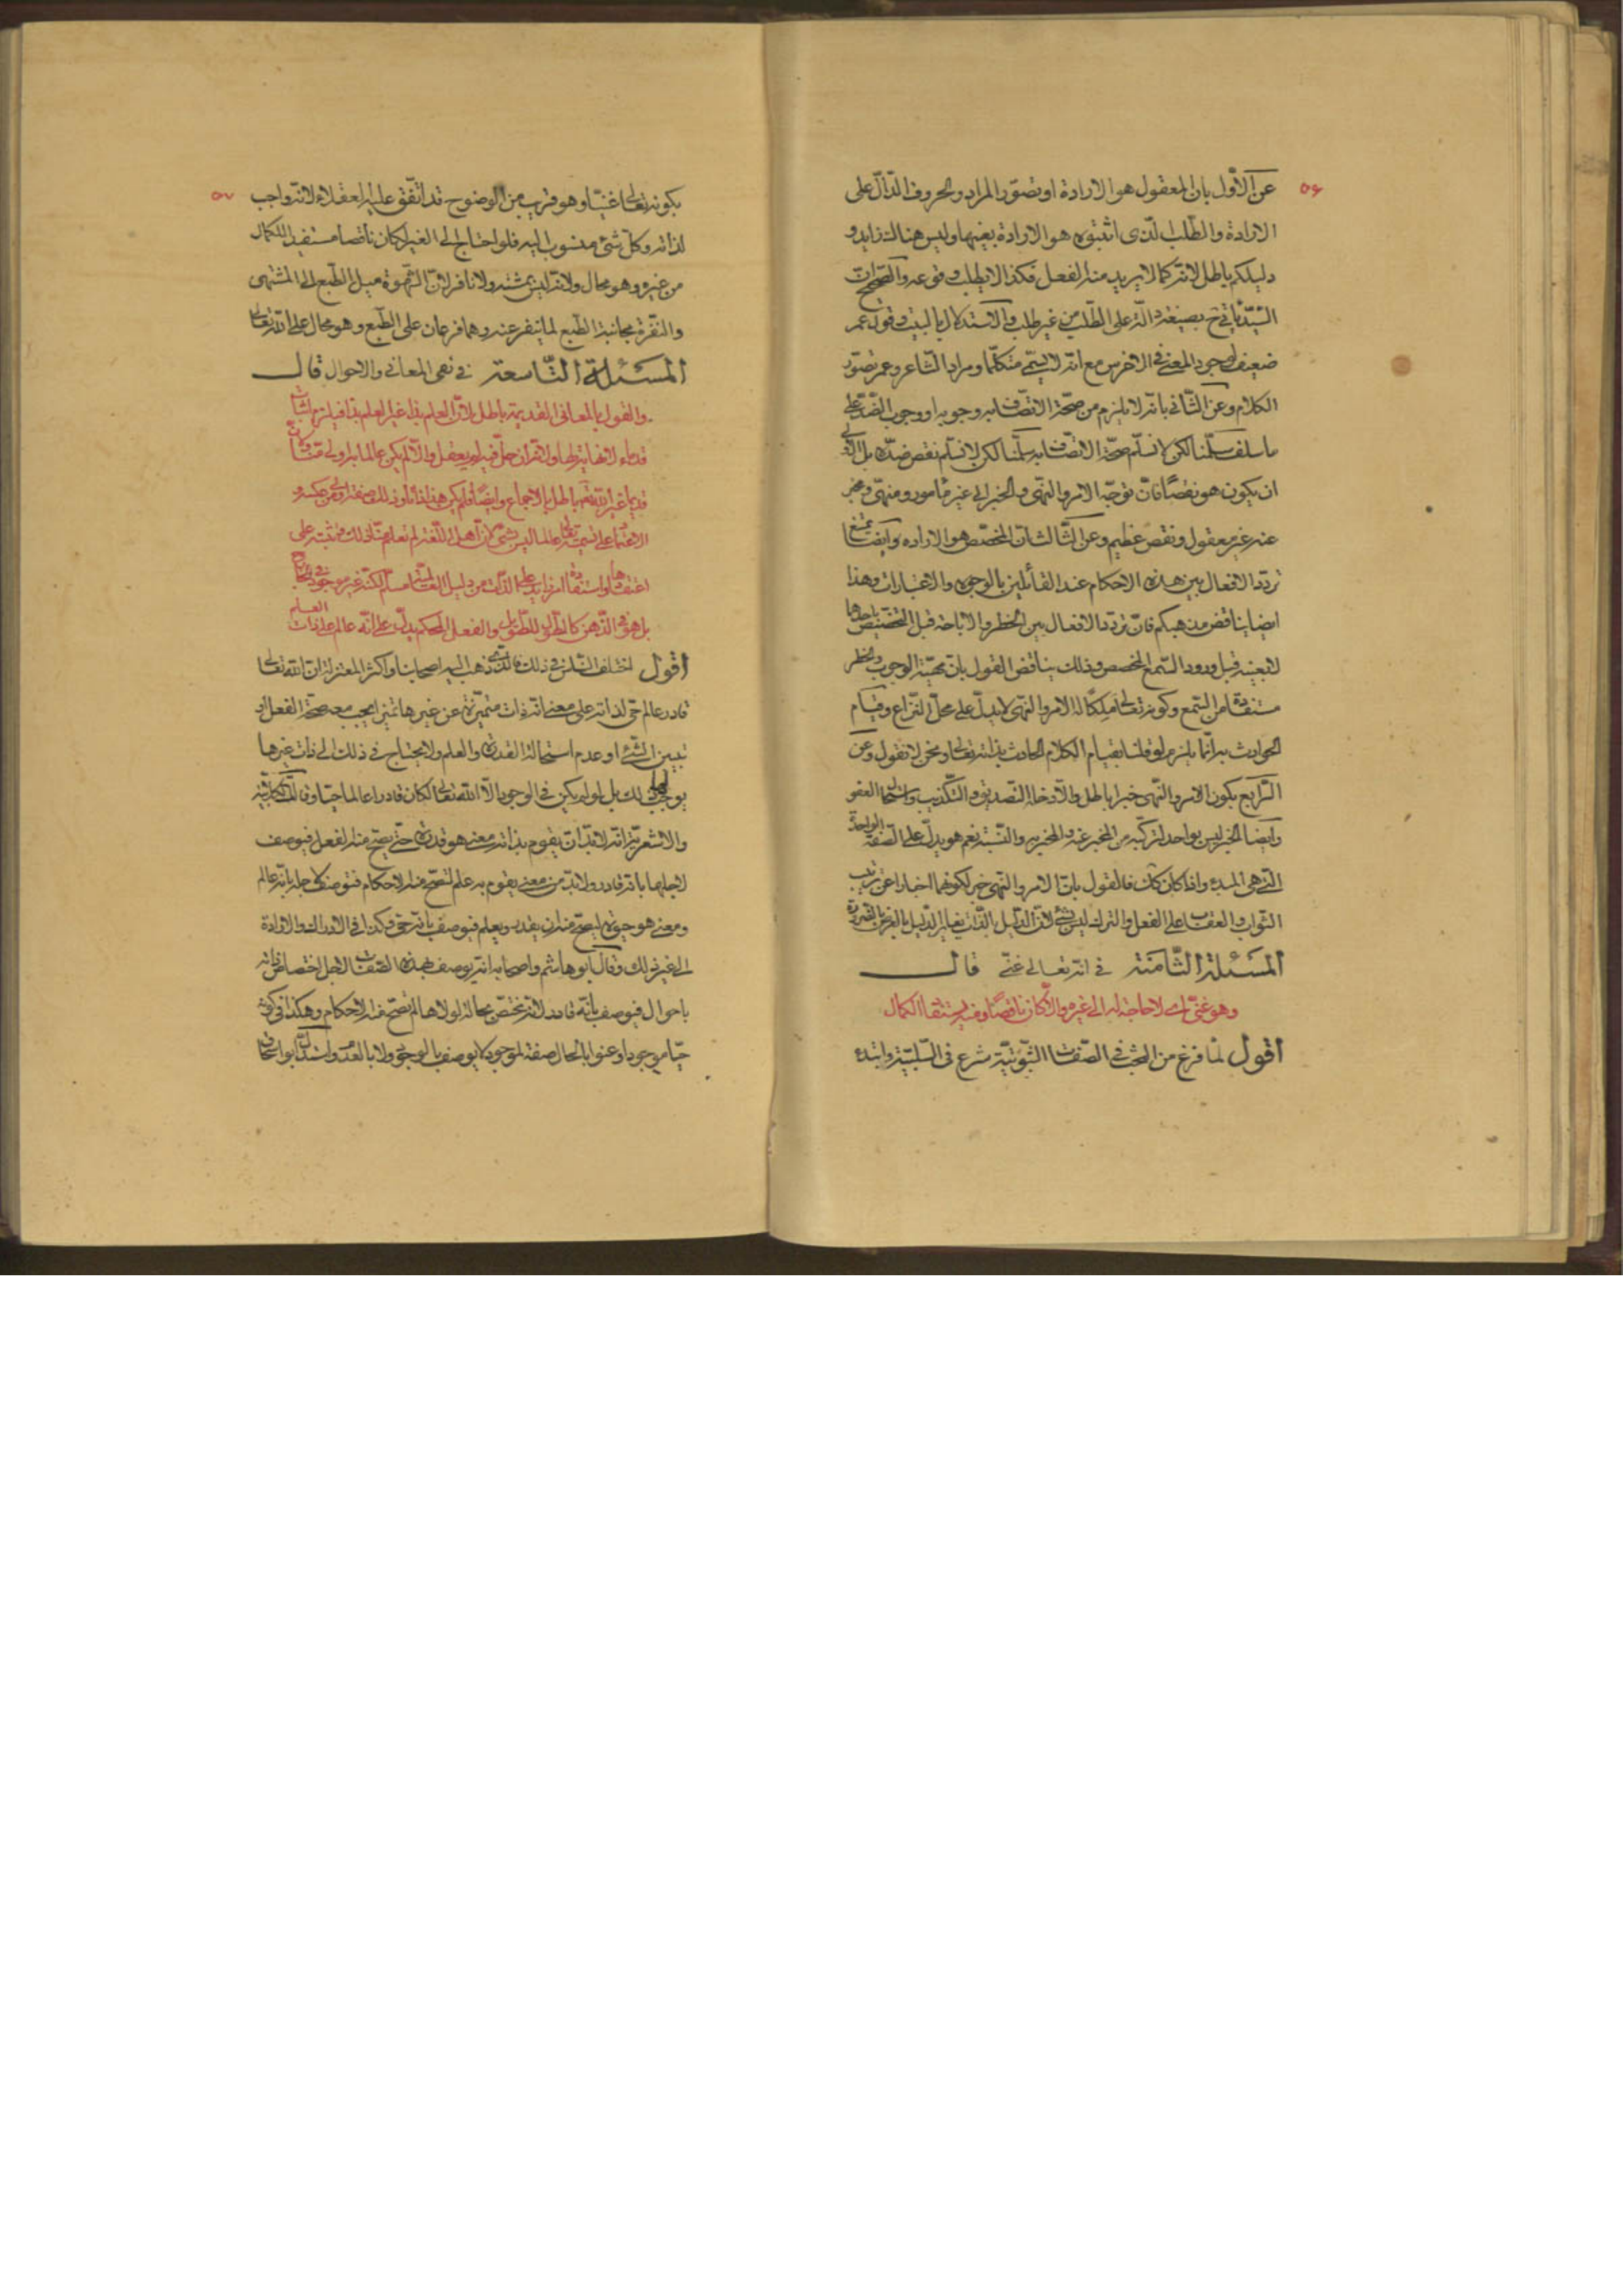 ٥۶
عن الأوّل بان المعقول هو الارادة او تصوّر المراد والحروف الدّالّ على
الارادة والطّلب الّذى اثبتوه هو الارادة بعينها وليس هناك زايد و
دليلكم باطل لانّه كما لا يريد منه الفعل فكذا لا يطلب وقوعه والصّحيح انّ
السّيّد ياتى ح بصيغة دالّة على الطّلب من غير طلب والاستدلال بالبيت وقول عمر
ضعيف لوجود المعنى فى الاخرس مع انّه لا يسمّى متكلّما ومراد الشّاعر وعمر تصوّر
الكلام وعن الثّانى بانّه لا يلزم من صحّة الاتّصاف به وجوبه او وجوب الضّدّ على
ما سلف سلّمنا لكن لا نسلّم صحّة الاتّصاف به سلّمنا لكن لا نسلّم نقص ضدّه بل
ان يكون هو نقصًا فانّ توجّه الامر والنّهى والخبر الى غير مأمور ومنهىّ ومخبر
عنه غير معقول ونقص عظيم وعن الثّالث انّ المخصّص هو الارادة وايضا يمتنع
تردّد الافعال بين هذه الاحكام عند القائلين بالوجوه والاعتبارات وهذا
ايضا يناقض مذهبكم فانّ تردّد الافعال بين الحظر والاباحة قبل التخصيص باحدها
لا بعينه قبل ورود السّمع المخصص وذلك يناقض القول بانّ محسّنة الوجوب والحظر
مستفادة من السّمع وكونه تعالى ملكًا له الامر والنّهى لا يدلّ على محلّ النّزاع وقيام
الحوادث به انّما يلزم لو قلنا بقيام الكلام الحادث بذاته تعالى ونحن لا نقول وعن
الرّابع بكون الامر والنّهى خبرا باطل والّا دخله التّصديق والتّكذيب واستحال العفو
وايضا الخبر ليس بواحد لتركّبه من المخبر عنه والمخبر به والنّسبة نعم هو يدلّ على الصّفة الواحدة
الّتى هى المبدء واذا كان كان فالقول بانّ الامر والنّهى خبر لكونهما اخبارا عن ترتّب
الثّواب والعقاب على الفعل والترك ليس بشئ لانّ الدّليل بالذّات يغاير الدّليل بالعرض بالضّرورة
المسئلة الثّامنة فى انّه تعالى غنىّ قال
وهو غنىّ اى لا حاجة له الى غيره والّا كان ناقصًا وفيه استفاد الكمال
اقول لمّا فرغ من البحث فى الصّفات الثّبوتيّة شرع فى السّلبيّة وابتدء
٥٧
بكونه تعالى غنيّا وهو قريب من الوضوح قد اتّفق عليه العقلاء لانّه واجب
لذاته وكلّ شئ منسوب اليه فلو احتاج الى الغير لكان ناقصا مستفيد الكمال
من غيره وهو محال ولانّه ليس بمشته ولا نافر لانّ الشّهوة ميل الطّبع الى المشتهى
والنّفرة مجانبة الطّبع لما ينفر عنه وهما فرعان على الطّبع وهو محال على اللّه تعالى
المسئلة التّاسعة فى نفى المعانى والاحوال قال
والقول بالمعانى القديمة باطل لانّ العلم بذا غير العلم بذا فيلزم اثبات
قدماء لا نهاية لها ولانّ قيل لم يعقل والّا لم يكن عالما بل اولى منّا
قديما غير اللّه تعالى باطل بالاجماع وايضًا فلم يكن هذا ذاتا وذلك صفة اولى من عكسه و
الاعتماد على تسميته تعالى عالما ليس بشئ لانّ اهل اللّغة لم تعلم منّا ذلك فتثبته على
اعتقادها واستفادة امر زايد على الذّات من دليل العالميّة مسلّم لكنّه غير موجود فى الخارج
بل هو فى الذّهن كالطّول للطّويل والفعل المحكم يدلّ على انّه عالم لا على ذات العلم
اقول اختلف النّاس فى ذلك فالّذى ذهب اليه اصحابنا واكثر المعتزلة انّ اللّه تعالى
قادر عالم حىّ لذاته على معنى انّه ذات متميّزة عن غيرها تميّزا يجب معه صحّة الفعل او
تبيين الشّئ او عدم استحالة القدرة والعلم ولا يحتاج فى ذلك الى ذات غيرها
يوجب لها ذلك بل لو لم يكن فى الوجود الّا اللّه تعالى لكان قادرا عالما حيّا وقالت الكلّابيّة
والاشعريّة انّه لا بدّ ان يقوم بذاته معنى هو قدرة حتّى يصحّ منه الفعل فيوصف
لاجلها بانّه قادر ولا بدّ من معنى يقوم به علم لتصحّ منه الاحكام فيوصف لاجله بانّه عالم
ومعنى هو حيوة ليصحّ منه ان يقدر ويعلم فيوصف بانّه حىّ وكذا فى الادراك والارادة
الى غير ذلك وقال ابو هاشم واصحابه انّه يوصف بهذه الصّفات لاجل اختصاص ذاته
باحوال فيوصف بانّه قادر لانّه يختصّ بحالة لولاها لم تصحّ منه الاحكام وهكذا فى كونه
حيّا موجودا وعنوا بالحال صفة لموجود لا يوصف بالوجود ولا بالعدم واستدلّ ابو اسحاق